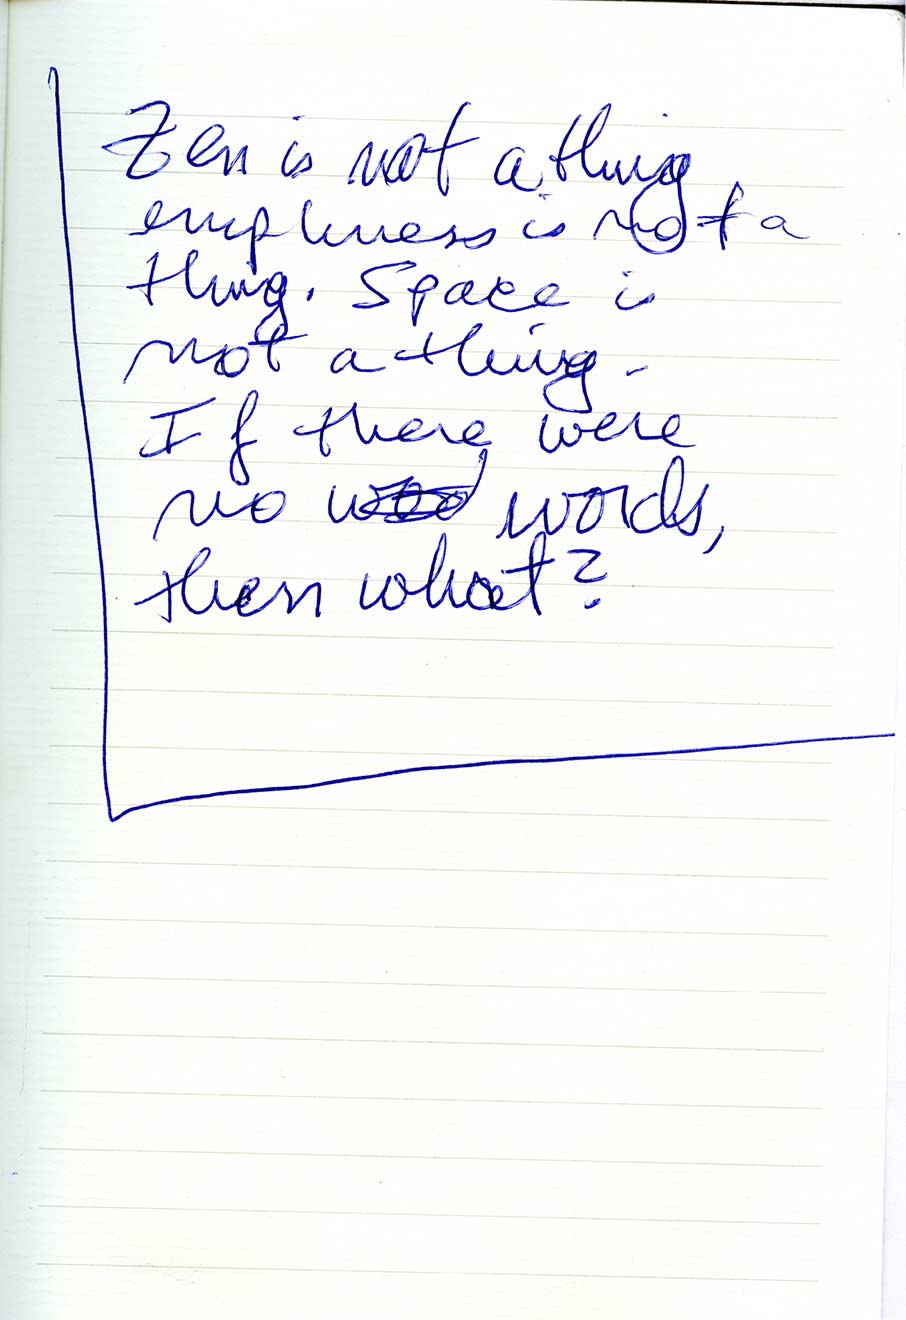 Zen is not a thing
emptiness is not a
thing. Space is
not a thing.
If there were
no words,
then what?